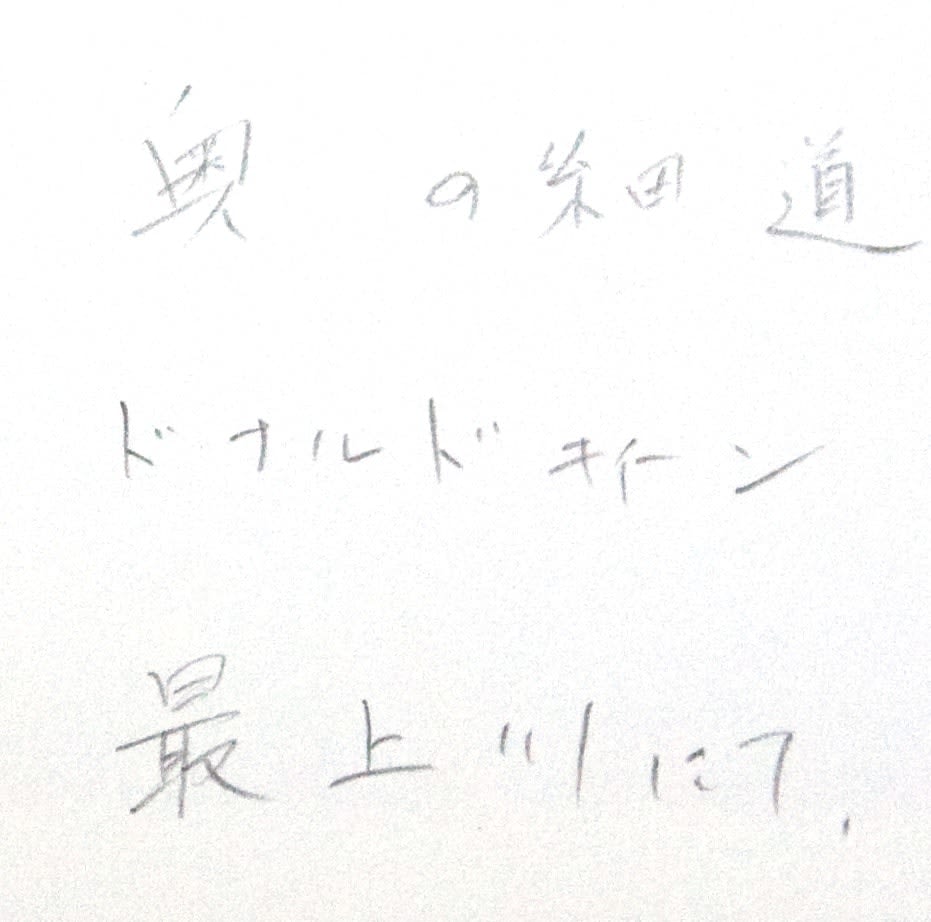 奥の細道
ドナルドキイーン
最上川にて.